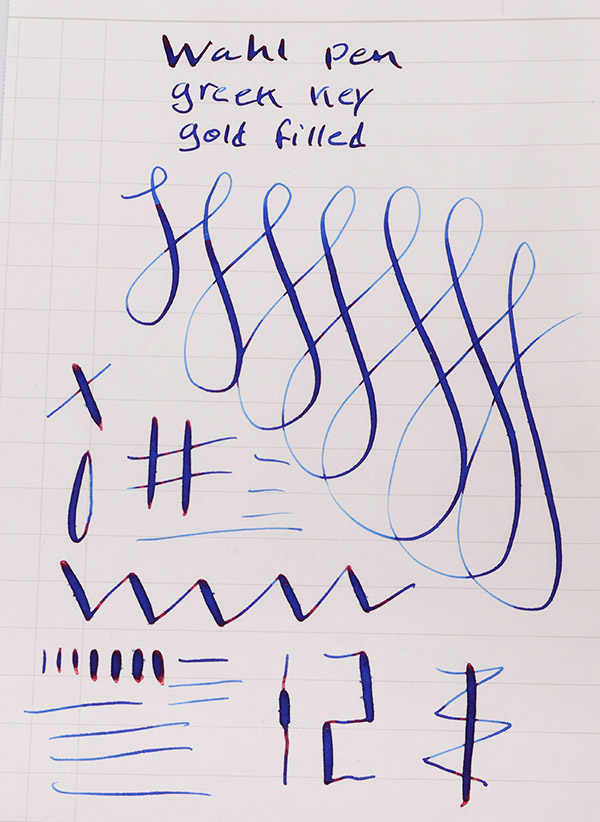 Wahl pen
greek key
gold filled